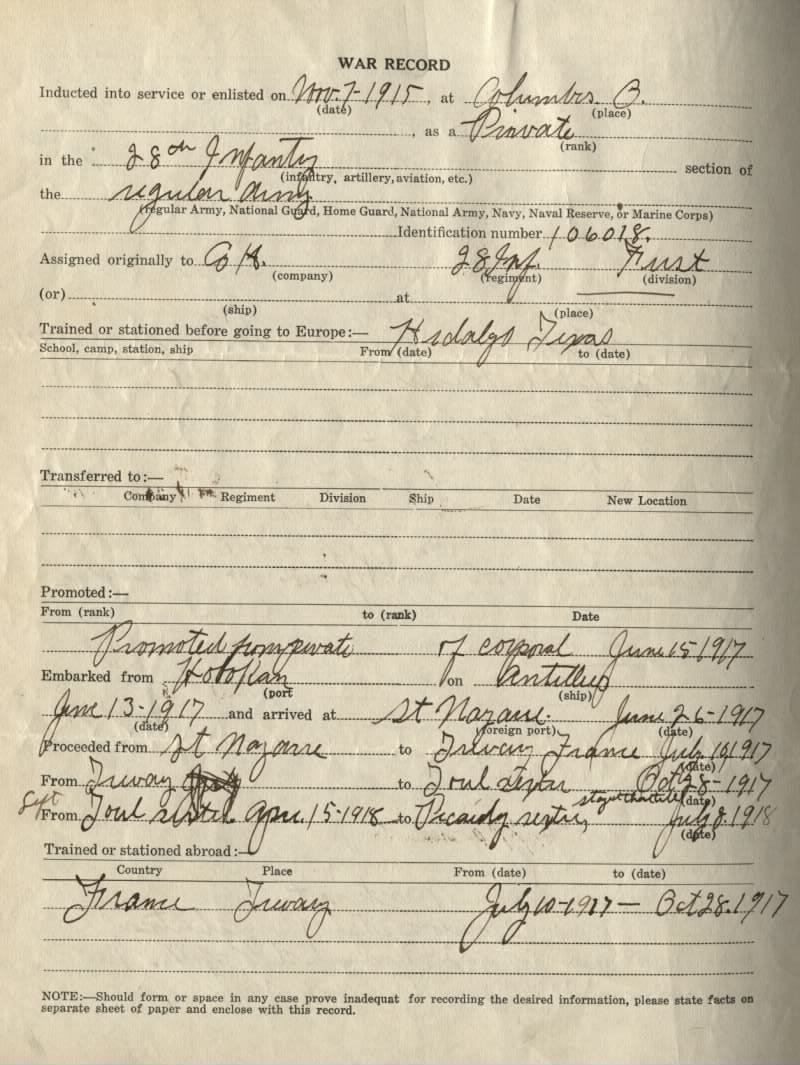 WAR RECORD
Inducted into service or enlisted on Nov. 7-1915, at Columbus. O.
(date) (place)
, as a Private
(rank)
in the 28th Infantry section of
(infantry, artillery, aviation, etc.)
the regular army
(regular Army, National Guard, Home Guard, National Army, Navy, Naval Reserve, or Marine Corps)
Identification number 106018.
Assigned originally to Co K. 28 Inf. First
(company) (regiment) (division)
(or) at
(ship) (place)
Trained or stationed before going to Europe:— Hidalgo Texas
School, camp, station, ship From (date) to (date)
Transferred to:—
Company Regiment Division Ship Date New Location
Promoted:—
From (rank) to (rank) Date
Promoted from private of corporal June 15 1917
Embarked from Hoboken on Antilles
(port (ship)
June 13-1917 and arrived at St Nazaire. June 26-1917
(date) (foreign port) (date)
Proceeded from St Nazaire to Treveray France July 10, 1917
(date)
From Treveray to Toul Oct 28-1917
(date)
From Toul 15-1918 to Picardy July 8. 1918
(date)
Trained or stationed abroad:—
Country Place From (date) to (date)
France July 10-1917 — Oct 28. 1917
NOTE:—Should form or space in any case prove inadequat for recording the desired information, please state facts on
separate sheet of paper and enclose with this record.